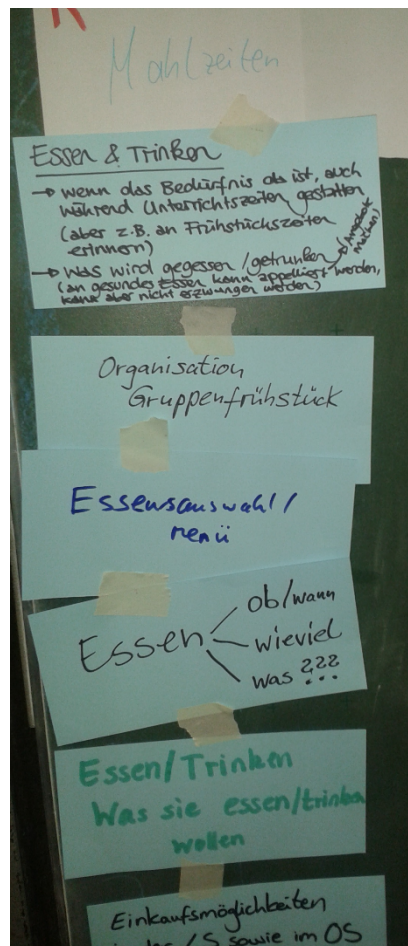 Mahlzeiten
Essen & Trinken
→ wenn das Bedürfnis da ist, auch
während Unterrichtszeiten gestatten
(aber z.B. an Frühstückszeiten
erinnern)
→ Was wird gegessen/getrunken (Angebote
machen)
(an gesundes Essen kann appelliert werden,
kann aber nicht erzwungen werden)
Organisation
Gruppenfrühstück
Essensauswahl/
Menü
Essen
ob/wann
wieviel
was ???
Essen/Trinken
Was sie essen/trinken
wollen
Einkaufsmöglichkeiten
/S sowie im OS